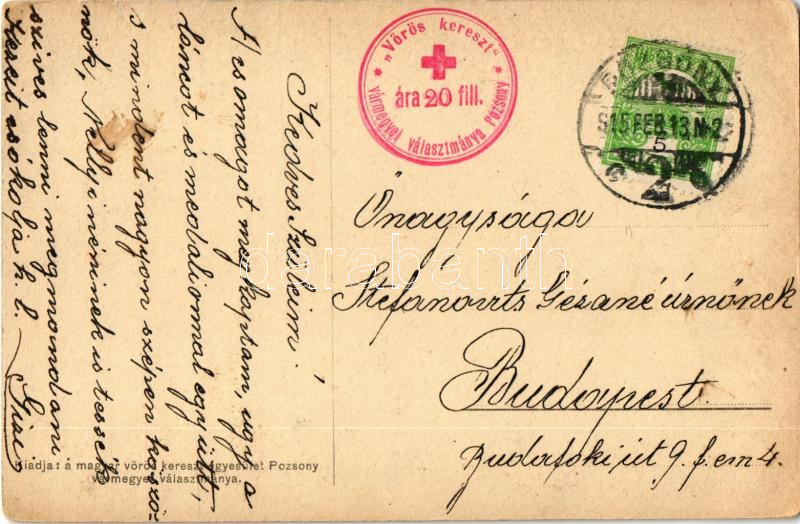 Kedves Szüleim!
A csomagot megkaptam, ugy a
láncot és medaliommal együtt,
s mindent nagyon szépen köszö-
nök, Nelly néninek is tessék
szives lenni megmondani
kezeit csókolja h. l. Giac
"Vörös kereszt"
ára 20 fill.
vármegyei választmánya Pozsony
POZSONY
915 FEB. 13. N. 22
Önagysága
Stefanovits Gézáné úrnőnek
Budapest
Budafoki út 9. f. em 4.
Kiadja: a magyar vörös kereszt egyesület Pozsony
vármegyei választmánya.
darabanth